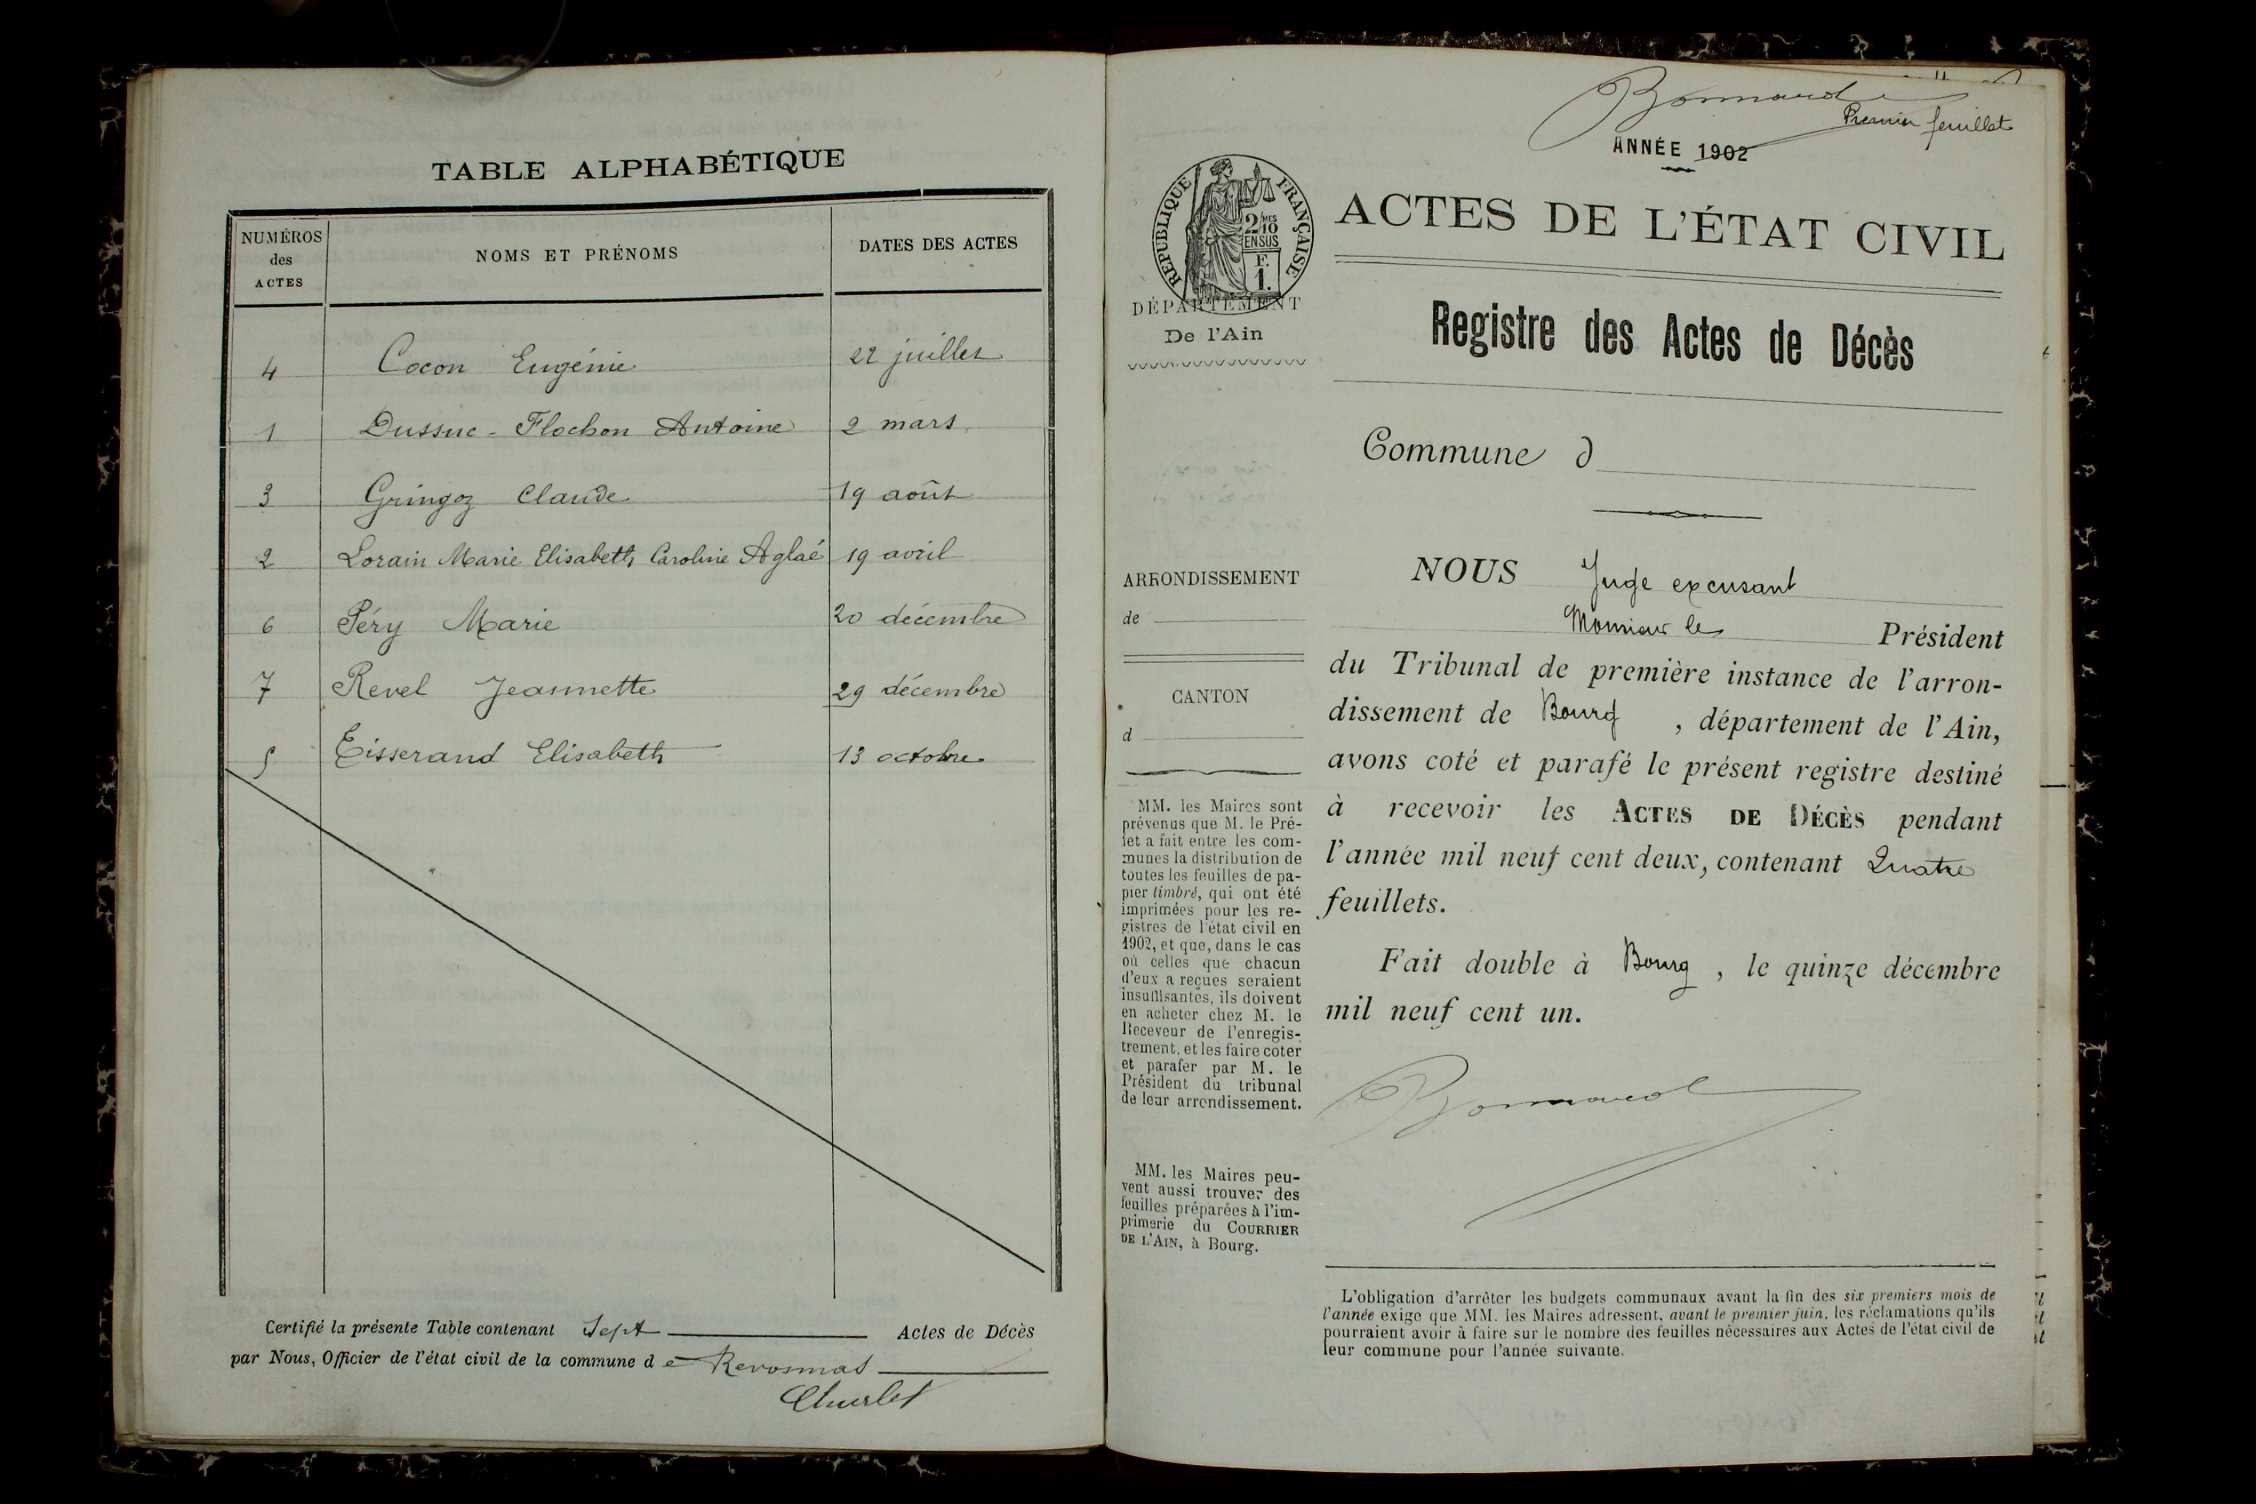 TABLE ALPHABÉTIQUE
NUMÉROS des ACTES
NOMS ET PRÉNOMS
DATES DES ACTES
4 Cocon Eugénie 22 juillet
1 Dussuc-Flochon Antoine 2 mars
3 Gringoz Claude 19 août
2 Lorain Marie Elisabeth Caroline Aglaé 19 avril
6 Péry Marie 20 décembre
7 Revel Jeannette 29 décembre
5 Tisserand Elisabeth 13 octobre
Certifié la présente Table contenant Sept Actes de Décès
par Nous, Officier de l'état civil de la commune de Revonnas
Bonnard
Premier feuillet
ANNÉE 1902
RÉPUBLIQUE FRANÇAISE
2/MES
10
EN SUS
F.
1.
DÉPARTEMENT
De l'Ain
ACTES DE L'ÉTAT CIVIL
Registre des Actes de Décès
Commune d
ARRONDISSEMENT
de
CANTON
d
MM. les Maires sont
prévenus que M. le Pré-
fet a fait entre les com-
munes la distribution de
toutes les feuilles de pa-
pier timbré, qui ont été
imprimées pour les re-
gistres de l'état civil en
1902, et que, dans le cas
où celles que chacun
d'eux a reçues seraient
insuffisantes, ils doivent
en acheter chez M. le
Receveur de l'enregis-
trement, et les faire coter
et parafer par M. le
Président du tribunal
de leur arrondissement.
MM. les Maires peu-
vent aussi trouver des
feuilles préparées à l'im-
primerie du COURRIER
DE L'AIN, à Bourg.
NOUS Juge excusant
Monsieur le Président
du Tribunal de première instance de l'arron-
dissement de Bourg , département de l'Ain,
avons coté et parafé le présent registre destiné
à recevoir les ACTES DE DÉCÈS pendant
l'année mil neuf cent deux, contenant Quatre
feuillets.
Fait double à Bourg , le quinze décembre
mil neuf cent un.
Bonnard
L'obligation d'arrêter les budgets communaux avant la fin des six premiers mois de
l'année exige que MM. les Maires adressent, avant le premier juin, les réclamations qu'ils
pourraient avoir à faire sur le nombre des feuilles nécessaires aux Actes de l'état civil de
leur commune pour l'année suivante.